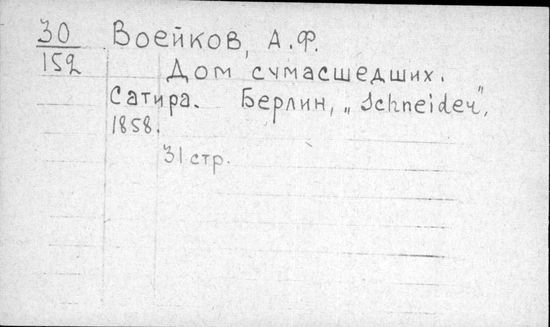 30 Воейков, А.Ф.
152 Дом сумасшедших.
Сатира. Берлин, „Schneider",
1858.
31 стр.